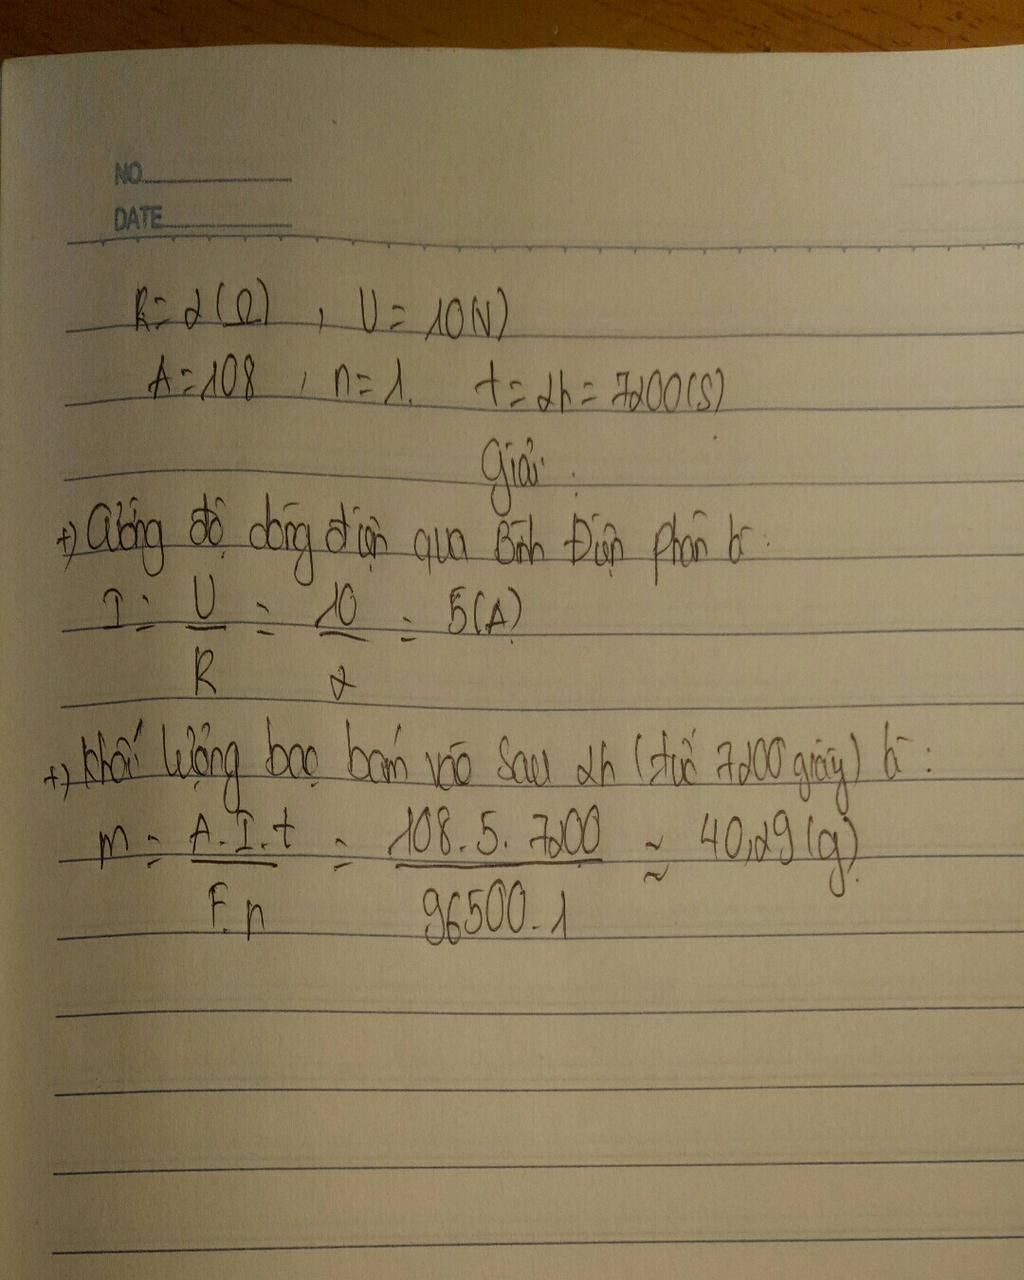 NO
DATE
R = 2 (Ω) , U = 10(V)
A = 108 , n = 1. t = 2h = 7200(s)
Giải:
+) Cường độ dòng điện qua Bình Điện phân là:
I = U/R = 10/2 = 5(A)
+) Khối lượng bạc bám vào sau 2h (tức 7200 giây) là:
m = A.I.t/F.n = 108.5.7200/96500.1 ≈ 40,29(g)